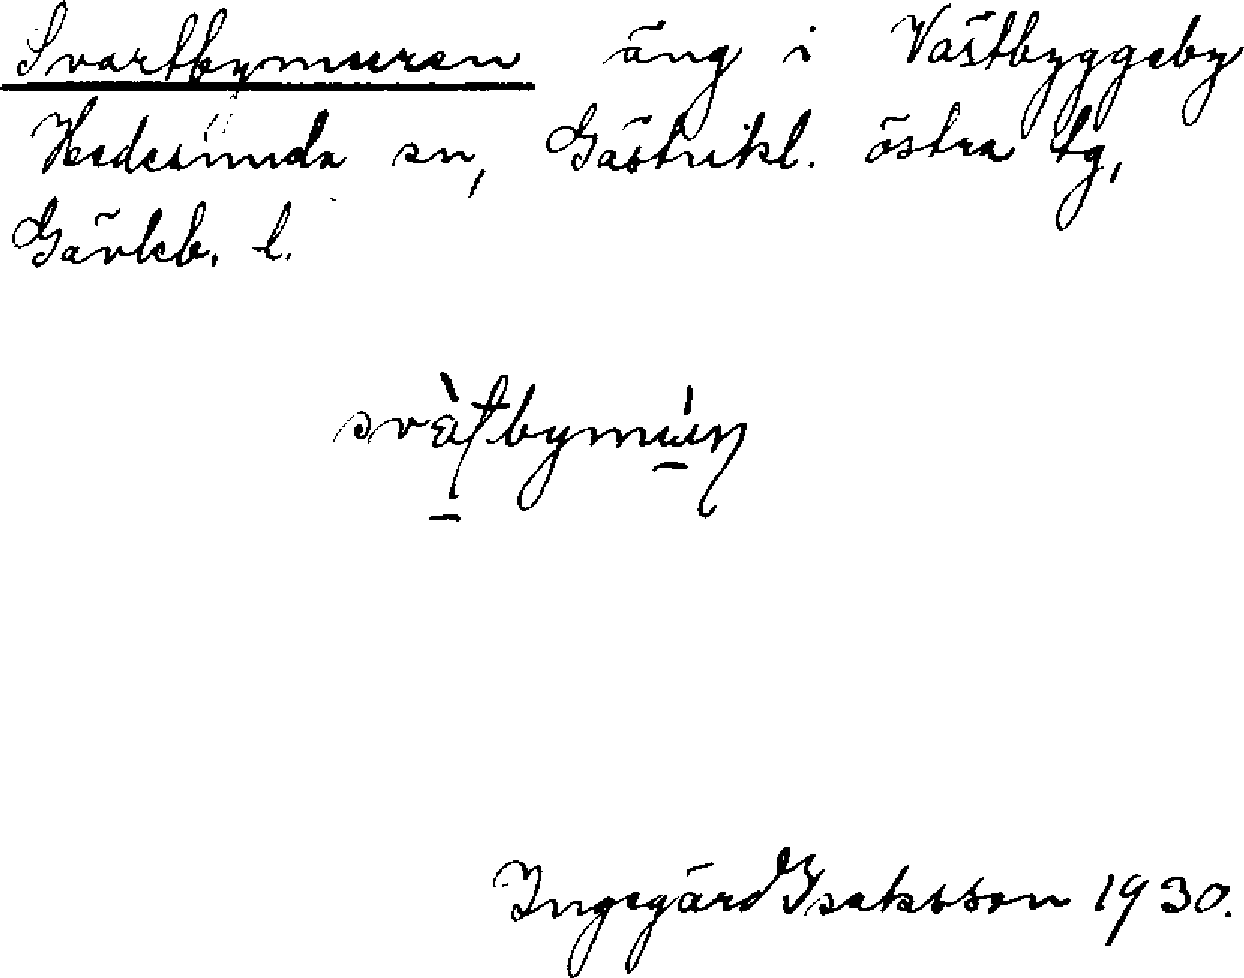 Svartbymuren äng i Västbyggeby
Hedesunda sn, Gästrikl. östra tg,
Gävleb. l.
Ingegärd Isaksson 1930.